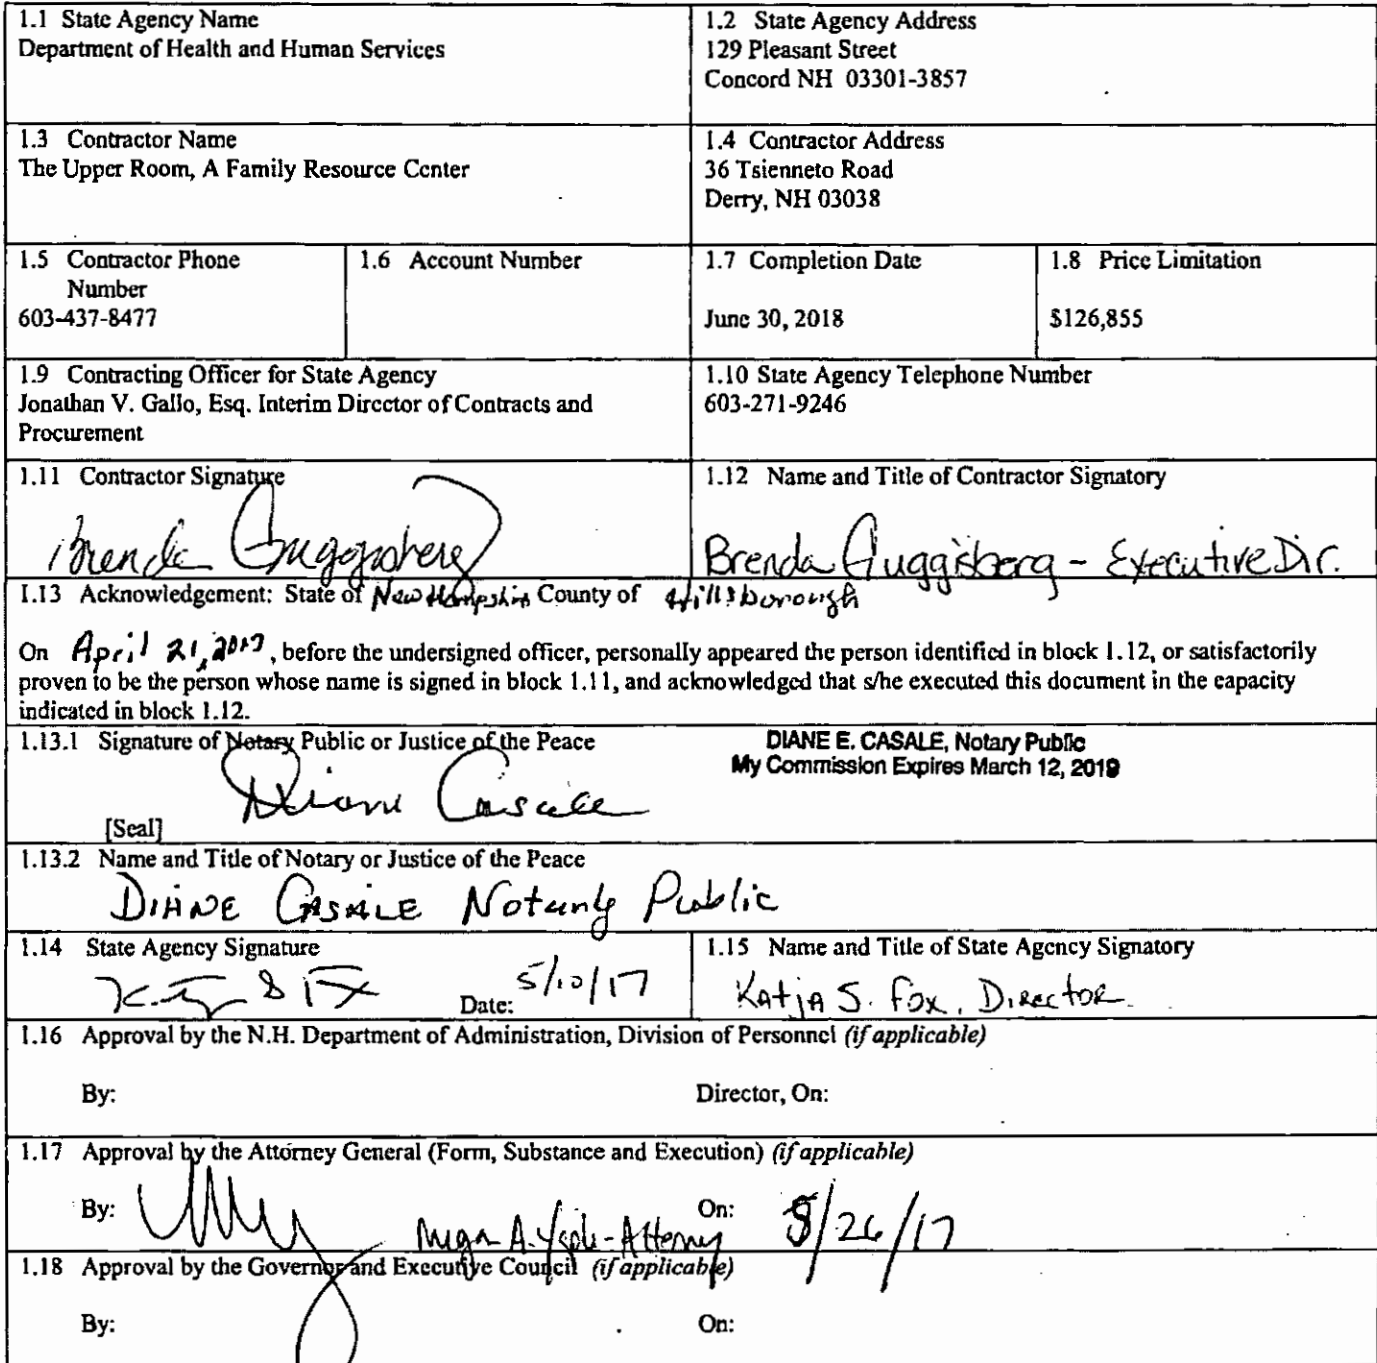 1.1 State Agency Name
Department of Health and Human Services
1.2 State Agency Address
129 Pleasant Street
Concord NH 03301-3857
1.3 Contractor Name
The Upper Room, A Family Resource Center
1.4 Contractor Address
36 Tsienneto Road
Derry, NH 03038
1.5 Contractor Phone
Number
603-437-8477
1.6 Account Number
1.7 Completion Date
June 30, 2018
1.8 Price Limitation
$126,855
1.9 Contracting Officer for State Agency
Jonathan V. Gallo, Esq. Interim Director of Contracts and
Procurement
1.10 State Agency Telephone Number
603-271-9246
1.11 Contractor Signature
Brenda Guggisberg
1.12 Name and Title of Contractor Signatory
Brenda Guggisberg - Executive Dir.
1.13 Acknowledgement: State of New Hampshire County of Hillsborough
On April 21, 2017, before the undersigned officer, personally appeared the person identified in block 1.12, or satisfactorily
proven to be the person whose name is signed in block 1.11, and acknowledged that s/he executed this document in the capacity
indicated in block 1.12.
1.13.1 Signature of Notary Public or Justice of the Peace
DIANE E. CASALE, Notary Public
My Commission Expires March 12, 2019
Diane Casale
[Seal]
1.13.2 Name and Title of Notary or Justice of the Peace
DIANE CASALE Notary Public
1.14 State Agency Signature
Date: 5/10/17
1.15 Name and Title of State Agency Signatory
Katja S. Fox, Director
1.16 Approval by the N.H. Department of Administration, Division of Personnel (if applicable)
By:
Director, On:
1.17 Approval by the Attorney General (Form, Substance and Execution) (if applicable)
By: A. - Attorney On: 5/26/17
1.18 Approval by the Governor and Executive Council (if applicable)
By:
On: